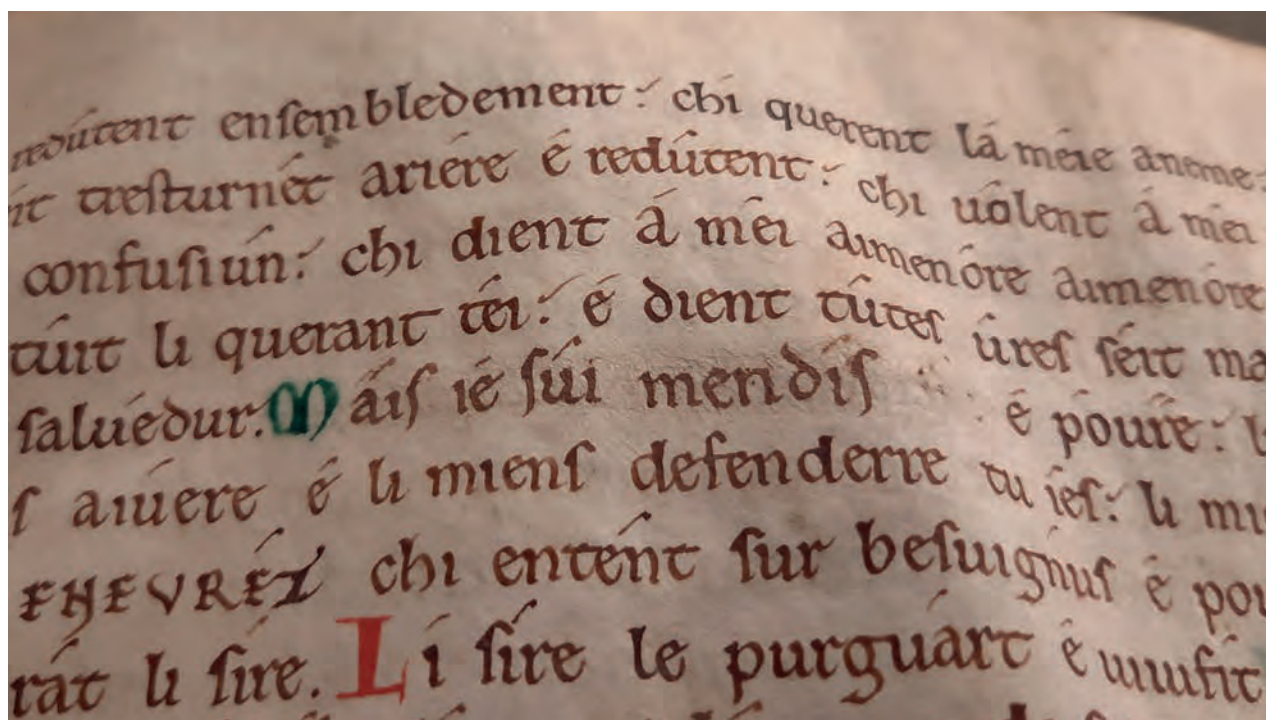 redútent ensembledement: chi querent lá méie aneme:
it tresturnét ariére é redútent: chi uólent á mei
confusiún: chi dient á méi aimenóre aimenóre
túit li querant téi: é dient tútes úres séit ma
saluédur. Máis ié súi mendis é póure: l
s aiuere é li miens defenderre tu iés: li mi
EHEVRÉZ chi entént sur besuignus é pou
rát li sire. Lí sire le purguárt é uiuifit